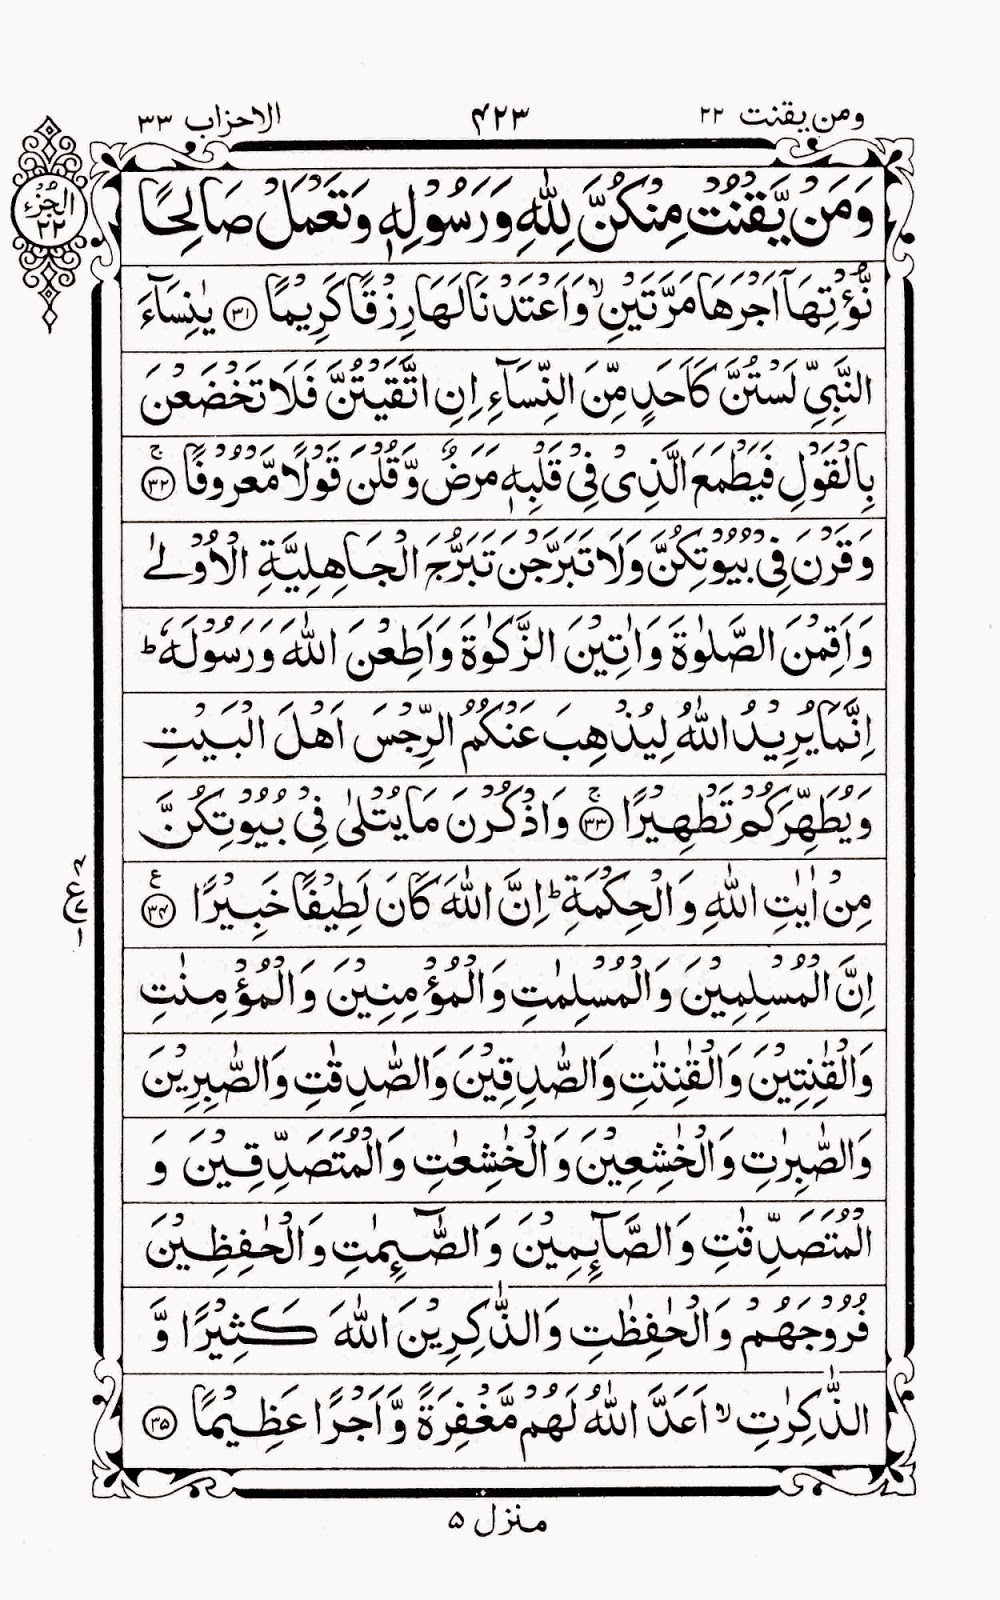 ومن یقنت ۲۲
۴۲۳
الاحزاب ۳۳
الجزء
۲۲
وَمَنْ يَّقْنُتْ مِنْكُنَّ لِلّٰهِ وَرَسُوْلِهٖ وَتَعْمَلْ صَالِحًا
نُّؤْتِهَاۤ اَجْرَهَا مَرَّتَيْنِ ۙ وَاَعْتَدْنَا لَهَا رِزْقًا كَرِيْمًا ۳۱ يٰنِسَآءَ
النَّبِيِّ لَسْتُنَّ كَاَحَدٍ مِّنَ النِّسَآءِ اِنِ اتَّقَيْتُنَّ فَلَا تَخْضَعْنَ
بِالْقَوْلِ فَيَطْمَعَ الَّذِيْ فِيْ قَلْبِهٖ مَرَضٌ وَّقُلْنَ قَوْلًا مَّعْرُوْفًا ۚ ۳۲
وَقَرْنَ فِيْ بُيُوْتِكُنَّ وَلَا تَبَرَّجْنَ تَبَرُّجَ الْجَاهِلِيَّةِ الْاُوْلٰى
وَاَقِمْنَ الصَّلٰوةَ وَاٰتِيْنَ الزَّكٰوةَ وَاَطِعْنَ اللّٰهَ وَرَسُوْلَهٗ ؕ
اِنَّمَا يُرِيْدُ اللّٰهُ لِيُذْهِبَ عَنْكُمُ الرِّجْسَ اَهْلَ الْبَيْتِ
وَيُطَهِّرَكُمْ تَطْهِيْرًا ۚ ۳۳ وَاذْكُرْنَ مَا يُتْلٰى فِيْ بُيُوْتِكُنَّ
مِنْ اٰيٰتِ اللّٰهِ وَالْحِكْمَةِ ؕ اِنَّ اللّٰهَ كَانَ لَطِيْفًا خَبِيْرًا ۳۴
۴
ع
۱
اِنَّ الْمُسْلِمِيْنَ وَالْمُسْلِمٰتِ وَالْمُؤْمِنِيْنَ وَالْمُؤْمِنٰتِ
وَالْقٰنِتِيْنَ وَالْقٰنِتٰتِ وَالصّٰدِقِيْنَ وَالصّٰدِقٰتِ وَالصّٰبِرِيْنَ
وَالصّٰبِرٰتِ وَالْخٰشِعِيْنَ وَالْخٰشِعٰتِ وَالْمُتَصَدِّقِيْنَ وَ
الْمُتَصَدِّقٰتِ وَالصَّآئِمِيْنَ وَالصّٰٓئِمٰتِ وَالْحٰفِظِيْنَ
فُرُوْجَهُمْ وَالْحٰفِظٰتِ وَالذّٰكِرِيْنَ اللّٰهَ كَثِيْرًا وَّ
الذّٰكِرٰتِ ۙ اَعَدَّ اللّٰهُ لَهُمْ مَّغْفِرَةً وَّاَجْرًا عَظِيْمًا ۳۵
منزل ۵